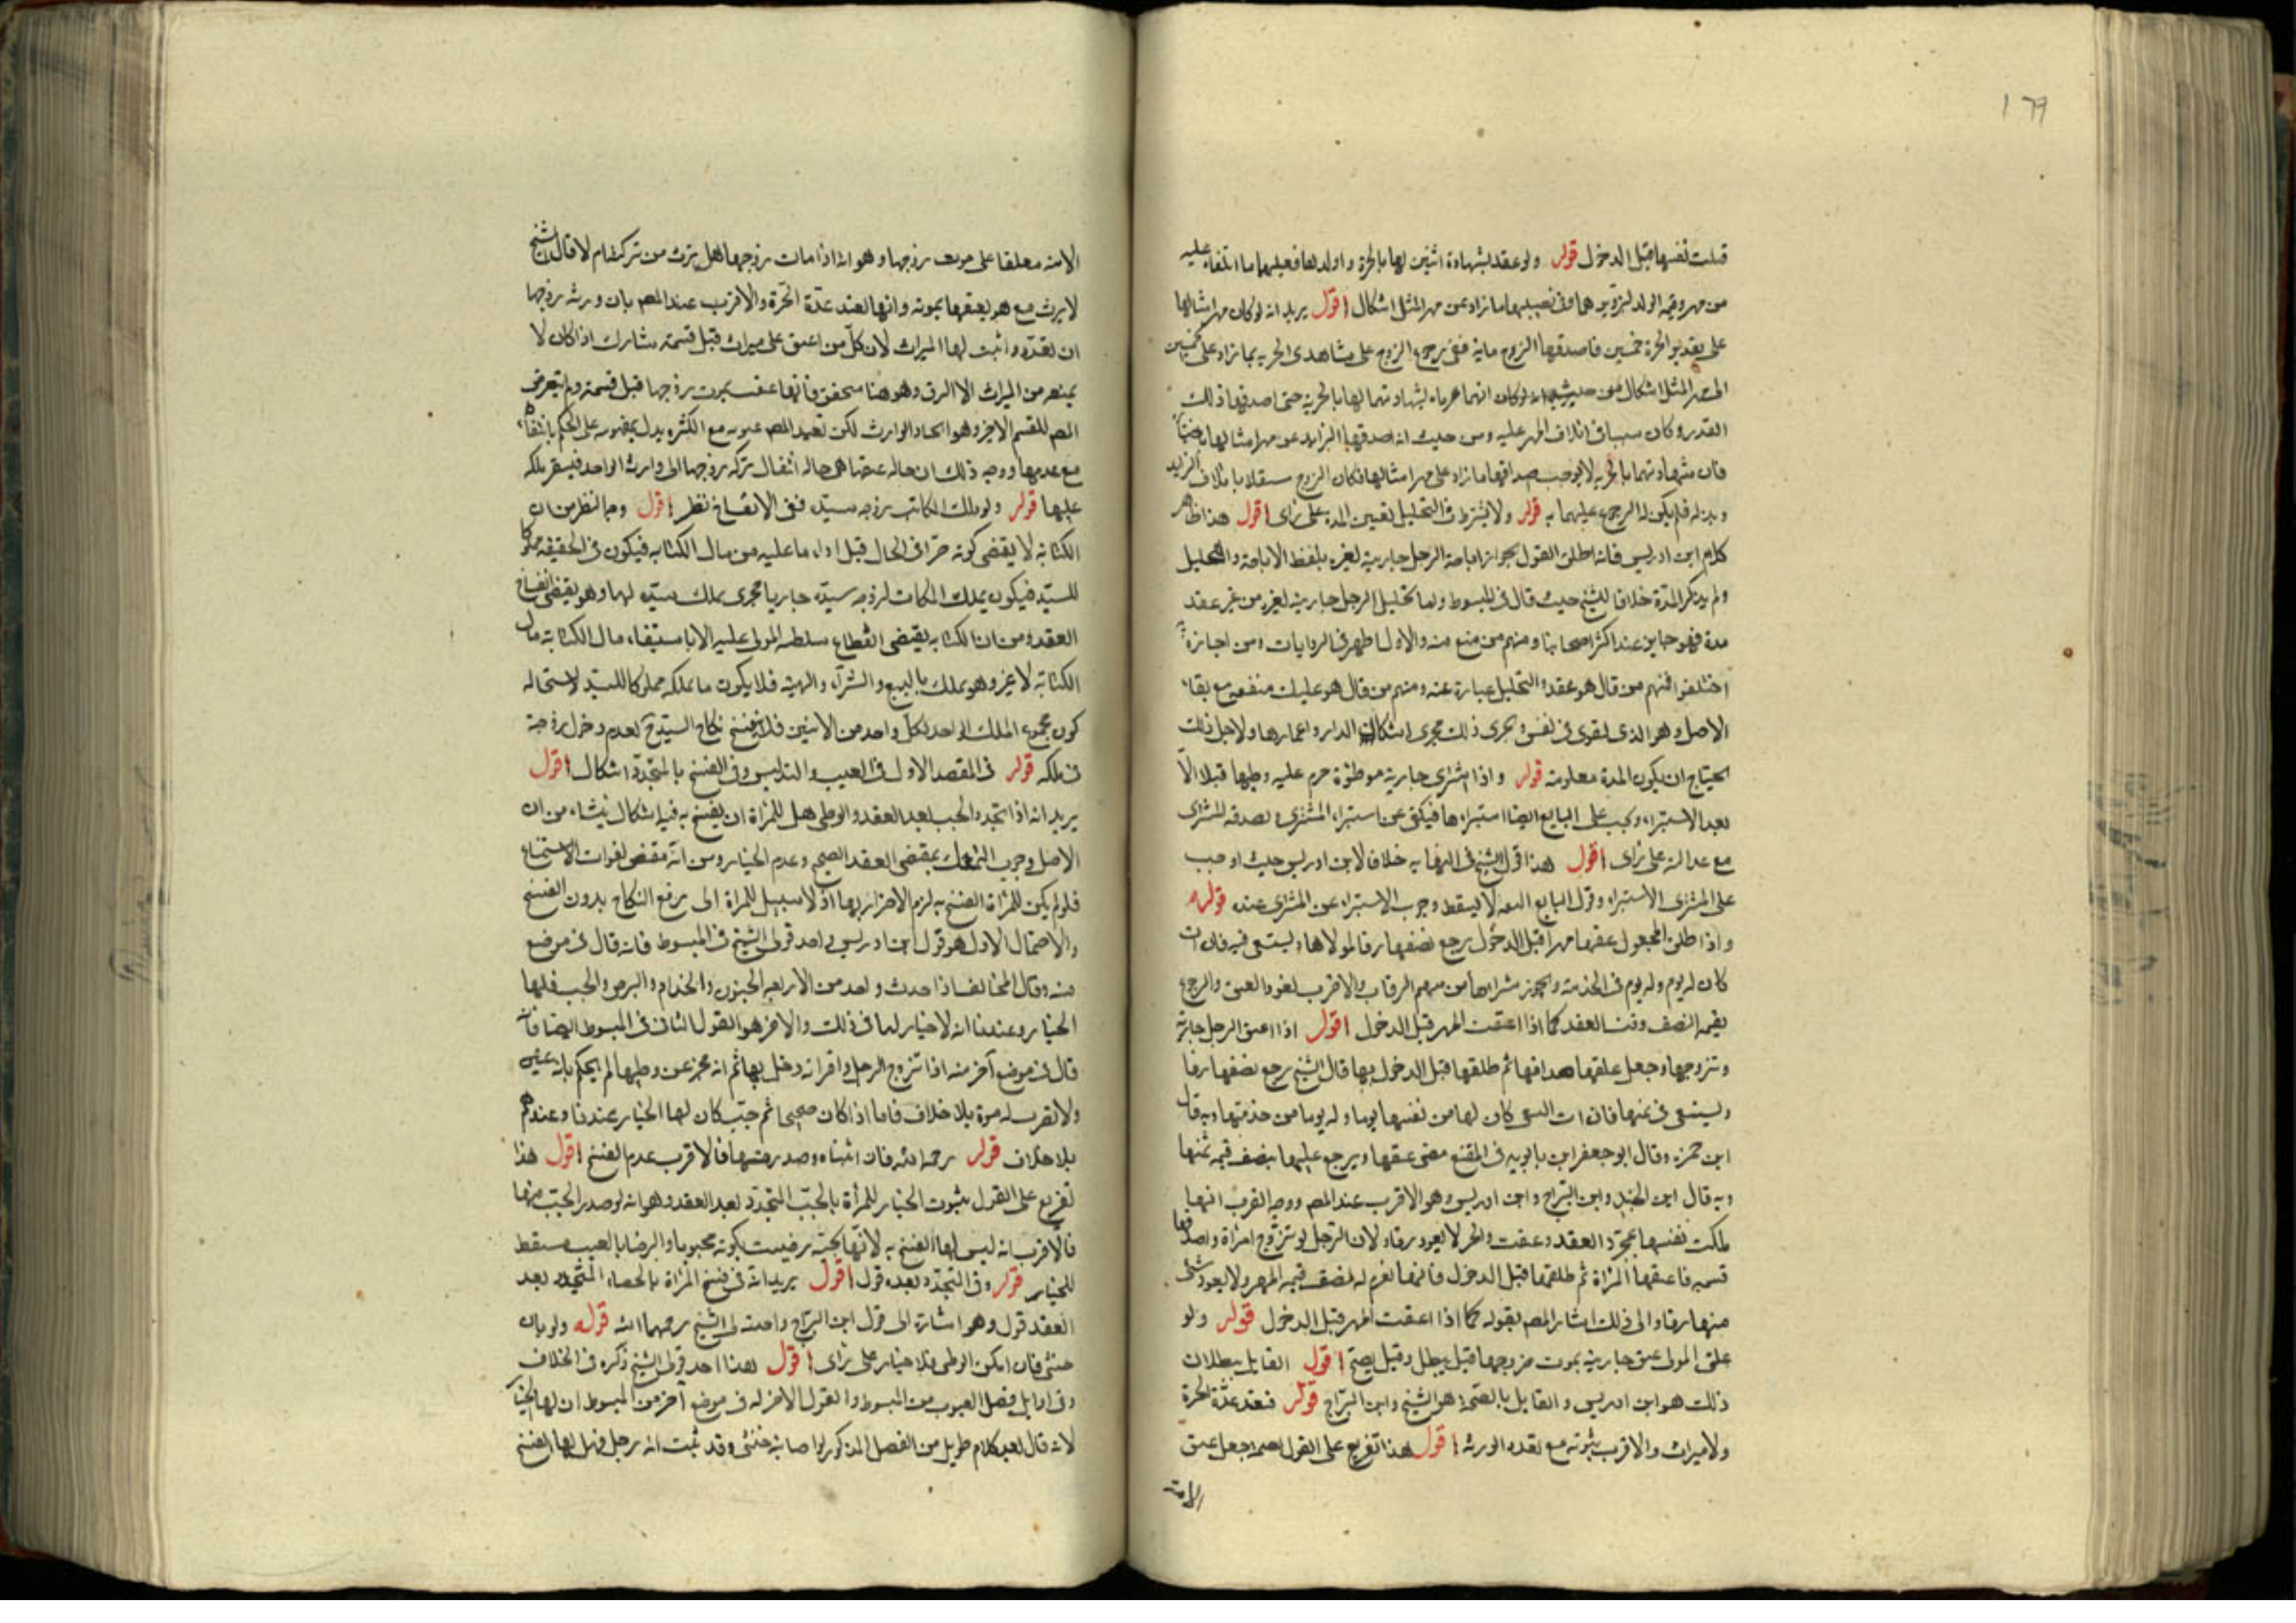 ١٦٩
قتلت نفسها قبل الدخول قوله ولو عقد بشهادة اثنين لها بالحرية واولدها فعليهما ما اتلفاه عليه
من مهر وقيمة الولد لتزويرهما وفي تضمينهما ما زاد عن مهر المثل اشكال اقول يريد انه لو كان مهر امثالها
على تقدير الحرة خمسين فاصدقها الزوج ماية ففي رجوع الزوج على مشاهدي الحرية بما زاد على خمسين
اشكال من حيث لو كان انهما غرماه بشهادتهما لها بالحرية حتى اصدقها ذلك
القدر وكان سببا في اتلاف المهر عليه ومن حيث انه اصدقها الزايد عن مهر امثالها
فان شهادتهما بالحرية لا يوجب صداقها ما زاد على مهر امثالها فكان الزوج مستقلا باتلاف الزيد
وبذله فلم يكن له الرجوع عليهما به قوله ولا يشترط في التحليل تعيين المدة على راى اقول هذا ظاهر
كلام ابن ادريس فانه اطلق القول بجواز اباحة الرجل جاريته لغيره بلفظ الاباحة والتحليل
ولم يذكر المدة خلافا للشيخ حيث قال في المبسوط واما تحليل الرجل جاريته لغيره من غير عقد
مدة فهو جايز عند اكثر اصحابنا ومنهم من منع منه والاول اظهر في الروايات ومن اجازه
اختلفوا فمنهم من قال هو عقد والتحليل عبارة عنه ومنهم من قال هو تمليك منفعة مع بقاء
الاصل وهو الذى يقوى في نفسى ويجرى ذلك مجرى اسكان الدار واعمارها ولاجل ذلك
يحتاج ان يكون المدة معلومة قوله واذا اشترى جارية موطوءة حرم عليه وطيها قبلا الا
بعد الاستبراء ويجب على البايع ايضا استبراءها فيكفى عن استبراء المشترى ويصدقه المشترى
مع عدالته على راى اقول هذا قول الشيخ في النهاية خلافا لابن ادريس حيث اوجب
على المشترى الاستبراء وقول البايع الثقة لا يسقط وجوب الاستبراء عن المشترى عنده قوله
واذا طلق المجعول عتقها مهرا قبل الدخول رجع نصفها رقا لمولاها ويستسعى فيه فان ابت
كان له يوم ولها يوم في الخدمة ويجوز شراءها من سهم الرقاب والاقرب نفوذ العتق والرجوع
بقيمة النصف وقت العقد كما اذا اعتقت المهر قبل الدخول اقول اذا اعتق الرجل جارية
وتزوجها وجعل عتقها صداقها ثم طلقها قبل الدخول بها قال الشيخ رجع نصفها رقا
ويستسعى في ثمنها فان ابت السعى كان لها من نفسها يوما وله يوما من خدمتها وبه قال
ابن حمزه وقال ابو جعفر ابن بابويه في المقنع مضى عتقها ويرجع عليها بنصف قيمة ثمنها
وبه قال ابن الجنيد وابن البراج وابن ادريس وهو الاقرب عند المصـ ووجه القرب انها
ملكت نفسها بمجرد العقد وعتقت والحر لا يعود رقا ولان الرجل لو تزوج امراة واصدقها
قسميه فاعتقها المراة ثم طلقها قبل الدخول فانها تغرم له نصف قيمة المهر ولا يعود شى
منها رقا والى ذلك اشار المصـ بقوله كما اذا اعتقت المهر قبل الدخول قوله ولو
علق المولى عتق جاريته بموت زوجها قيل يبطل وقيل يصح اقول القايل ببطلان
ذلك هو ابن ادريس والقايل بالصحة هو الشيخ وابن البراج قوله فتعتد عدة الحرة
ولا ميراث والاقرب ثبوته مع تعدد الورثة اقول هذا تفريع على القول بصحة جعل عتق
الامة
الامة معلقا على موت زوجها وهو انه اذا مات زوجها هل ترث من تركته ام لا قال الشيخ
لا يرث مع هو يعتقها بموته وانها تعتد عدة الحرة والاقرب عند المصـ بان ورثة زوجها
ان تعددوا ثبت لها الميراث لان كل من اعتق على ميراث قبل قسمته شارك اذا كان لا
يمنعه من الميراث الا الرق وهو هنا متحقق فانها عتقت بموت زوجها قبل قسمته ولم يتعرض
المصـ للقسم الاخر وهو اتحاد الوارث لكن تقييد المصـ ثبوته مع الكثرة يدل بمفهومه على الحكم بانتفائه
مع عدمها ووجه ذلك ان حالة عتقها هى حالة انتقال تركة زوجها الى وارثه الواحد فيستقر ملكه
عليها قوله ولو ملك المكاتب زوجة سيده ففي الانفساخ نظر اقول وجه النظر من ان
الكتابة لا يقتضى كونه حرا في الحال قبل اداء ما عليه من مال الكتابة فيكون في الحقيقة مملوكا
للسيد فيكون يملك المكاتب لزوجة سيده جاريا مجرى يملك سيده لها وهو يقتضى انفساخ
العقد ومن ان الكتابة يقتضى انقطاع سلطنة المولى عليه الا باستيفاء مال الكتابة مال
الكتابة لا غير وهو يملك بالبيع والشراء والهبة فلا يكون ما يملكه مملوكا للسيد لاستحالة
كون مجموع الملك الواحد لكل واحد من الاثنين فلا ينفسخ نكاح السيد لعدم دخول زوجته
في ملكه قوله في المقصد الاول في العيب والتدليس وفي الفسخ بالمتجدد اشكال اقول
يريد انه اذا تجدد الجب بعد العقد والوطى هل للمراة ان يفسخ به فيه اشكال ينشاء من ان
الاصل وجوب التمسك بمقتضى العقد الصحيح وعدم الخيار ومن انه مقتضى لفوات الاستمتاع
فلو لم يكن للمراة الفسخ به لزم الاضرار بها اذ لا سبيل للمراة الى رفع النكاح بدون الفسخ
والاحتمال الاول هو قول ابن ادريس واحد قولى الشيخ في المبسوط فانه قال في موضع
منه وقال المخالف اذا حدث واحد من الاربعة الجنون والجذام والبرص والجب فلها
الخيار وعندنا انه لا خيار لها في ذلك والاخر هو القول الثانى في المبسوط ايضا فانه
قال في موضع آخر منه اذا تزوج الرجل واقر انه دخل بها ثم انه عجز عن وطيها لم يحكم بانه عنين
ولا تضرب له مدة بلا خلاف فاما اذا كان صحيحا ثم جب كان لها الخيار عندنا وعندهم
بلا خلاف قوله رحمه الله فان اثبتناه وصدر منها فالاقرب عدم الفسخ اقول هذا
تفريع على القول بثبوت الخيار للمرأة بالجب المتجدد بعد العقد وهو انه لو صدر الجب منها
فالاقرب انه ليس لها الفسخ به لانها بجبه رضيت بكونه مجبوبا والرضا بالعيب مسقط
للخيار قوله وفي المتجدد بعده قول اقول يريد انه في فسخ المراة بالخصاء المتجدد بعد
العقد قول وهو اشارة الى قول ابن البراج واحد قولى الشيخ رحمهما الله قوله ولو بان
خنثى فان امكن الوطى فلا خيار على راى اقول هذا احد قولى الشيخ ذكره في الخلاف
وفي اوايل فصل العيوب من المبسوط والقول الاخر له في موضع آخر من المبسوط ان لها الخيار
لانه قال بعد كلام طويل من الفصل المذكور لو اصابته خنثى وقد ثبت انه رجل فهل لها الفسخ